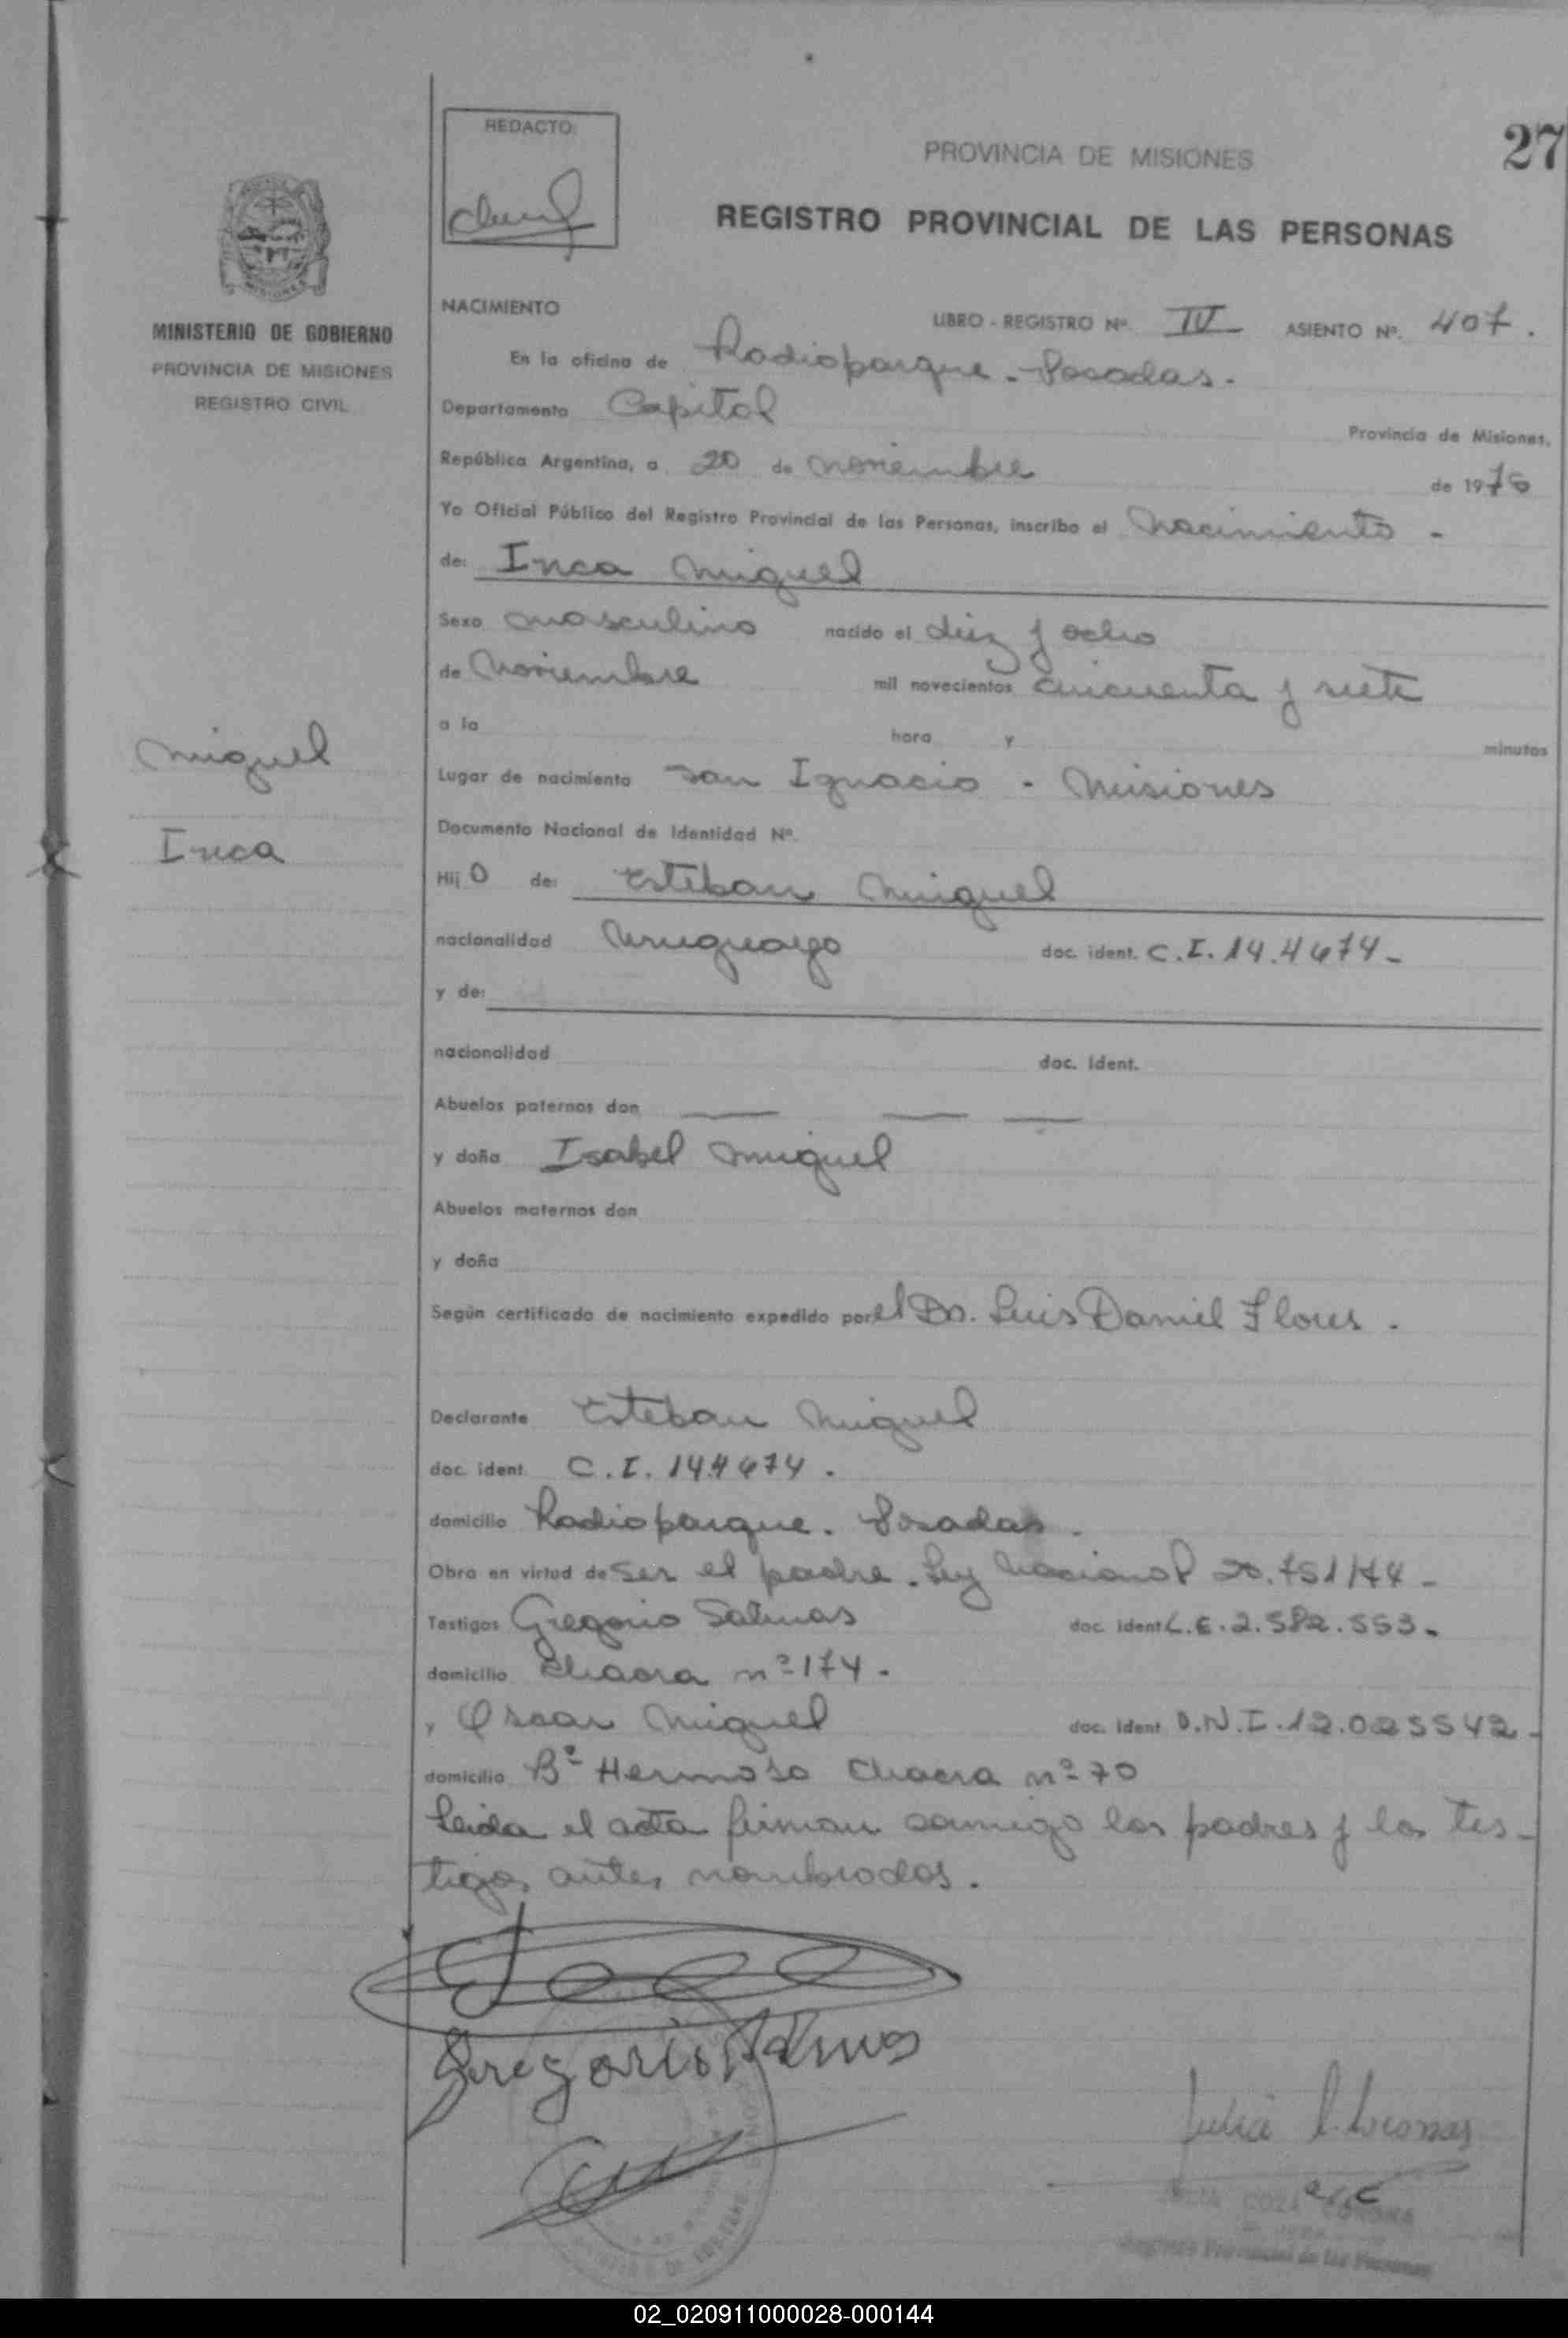 27
REDACTO:
PROVINCIA DE MISIONES
REGISTRO PROVINCIAL DE LAS PERSONAS
MISIONES
MINISTERIO DE GOBIERNO
PROVINCIA DE MISIONES
REGISTRO CIVIL
NACIMIENTO
LIBRO - REGISTRO Nº. IV ASIENTO Nº. 407.
En la oficina de Radioparque - Posadas.
Departamento Capital
Provincia de Misiones,
República Argentina, a 20 de noviembre de 197
Yo Oficial Público del Registro Provincial de las Personas, inscribo el Nacimiento -
de: Inca Miguel
Sexo masculino nacido el diez y ocho
de Noviembre mil novecientos cincuenta y siete
a la hora y minutos
Miguel
Inca
Lugar de nacimiento San Ignacio - Misiones
Documento Nacional de Identidad Nº.
Hij o de: Esteban Miguel
nacionalidad Uruguayo doc. ident. C.I. 14.4674-
y de:
nacionalidad doc. ident.
Abuelos paternos don — — —
y doña Isabel Miguel
Abuelos maternos don
y doña
Según certificado de nacimiento expedido por el Dr. Luis Daniel Flores.
Declarante Esteban Miguel
doc. ident. C.I. 144674.
domicilio Radioparque. Posadas.
Obra en virtud de Ser el padre. Ley Nacional 20.751/74-
Testigos Gregorio Salinas doc. ident L.E. 2.582.553.
domicilio Chacra nº 174.
y Oscar Miguel doc. ident D.N.I. 12.025542-
domicilio Bº Hermoso Chacra nº 70
Leida el acta firman conmigo los padres y los tes-
tigos antes nombrados.
Gregorio Salinas
Registro Provincial de las Personas
02_020911000028-000144